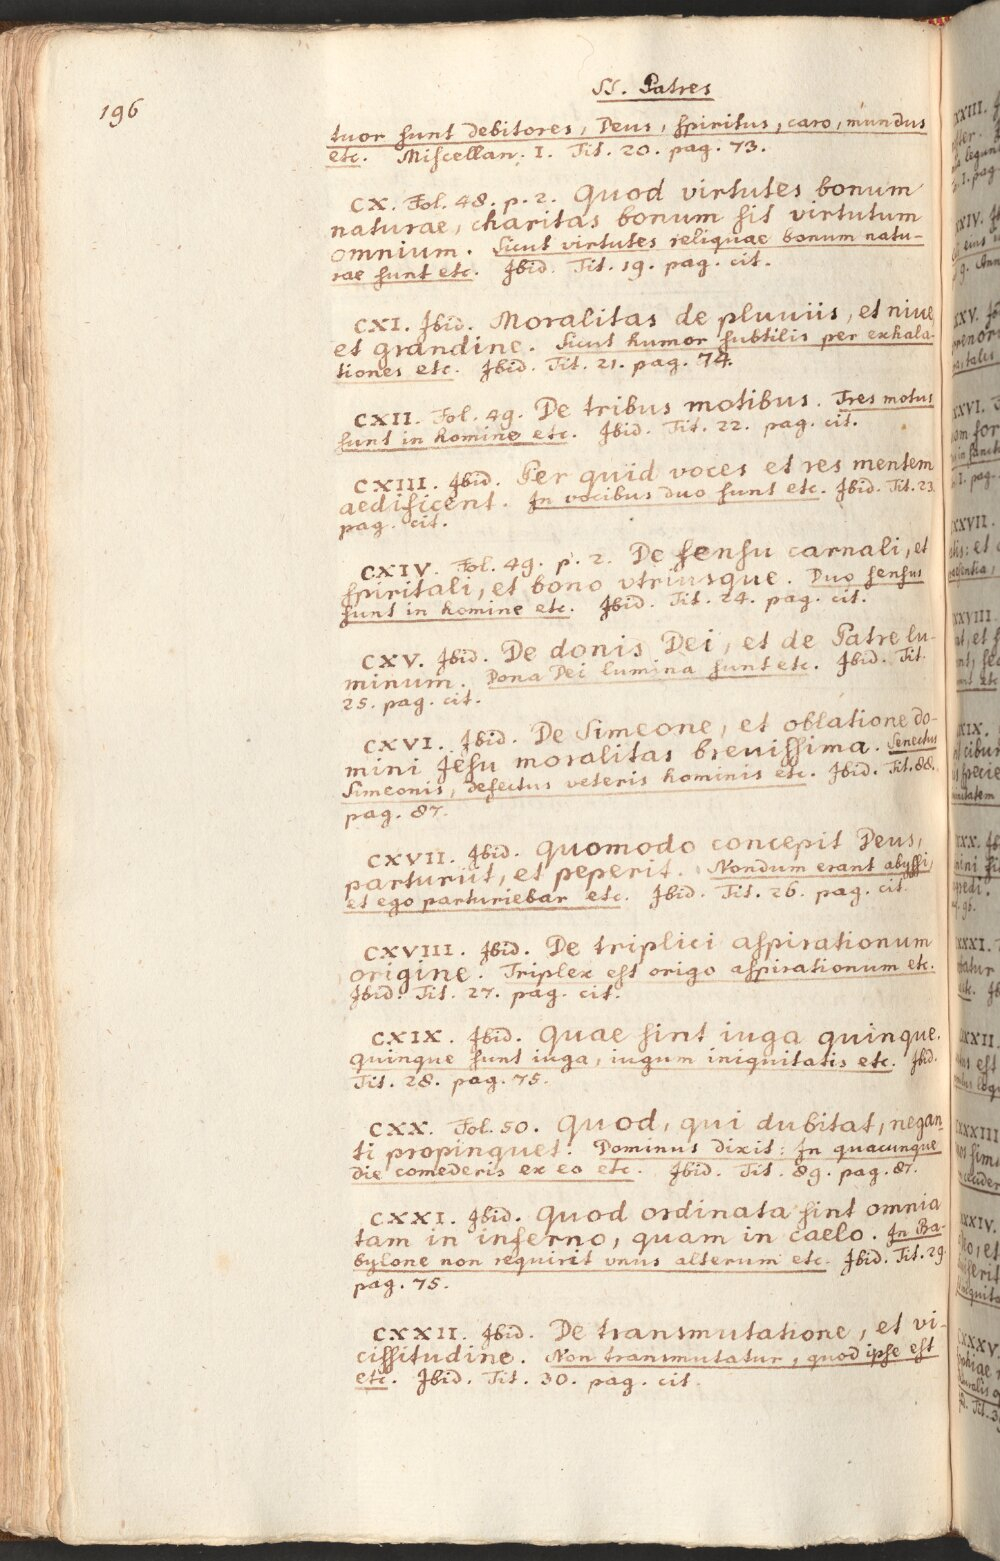 196
SS. Patres
tuor sunt debitores, Deus, spiritus, caro, mundus
etc. Miscellan. I. Tit. 20. pag. 73.
CX. Fol. 48. p. 2. Quod virtutes bonum
naturae, charitas bonum sit virtutum
omnium. Sicut virtutes reliquae bonum natu-
rae sunt etc. Ibid. Tit. 19. pag. cit.
CXI. Ibid. Moralitas de pluuiis, et niue,
et grandine. Sicut humor subtilis per exhala-
tiones etc. Ibid. Tit. 21. pag. 74.
CXII. Fol. 49. De tribus motibus. Tres motus
sunt in homine etc. Ibid. Tit. 22. pag. cit.
CXIII. Ibid. Per quid voces et res mentem
aedificent. In vocibus duo sunt etc. Ibid. Tit. 23.
pag. cit.
CXIV. Fol. 49. p. 2. De sensu carnali, et
spiritali, et bono vtriusque. Duo sensus
sunt in homine etc. Ibid. Tit. 24. pag. cit.
CXV. Ibid. De donis Dei, et de Patre lu-
minum. Dona Dei lumina sunt etc. Ibid. Tit.
25. pag. cit.
CXVI. Ibid. De Simeone, et oblatione do-
mini Jesu moralitas breuissima. Senectus
Simeonis, defectus veteris hominis etc. Ibid. Tit. 88.
pag. 87.
CXVII. Ibid. Quomodo concepit Deus,
parturiit, et peperit. Nondum erant abyssi,
et ego parturiebar etc. Ibid. Tit. 26. pag. cit.
CXVIII. Ibid. De triplici aspirationum
origine. Triplex est origo aspirationum etc.
Ibid. Tit. 27. pag. cit.
CXIX. Ibid. Quae sint iuga quinque.
Quinque sunt iuga, iugum iniquitatis etc. Ibid.
Tit. 28. pag. 75.
CXX. Fol. 50. Quod, qui dubitat, negan-
ti propinquet. Dominus dixit: In quacunque
die comederis ex eo etc. Ibid. Tit. 89. pag. 87.
CXXI. Ibid. Quod ordinata sint omnia
tam in inferno, quam in caelo. In Ba-
bylone non requirit vnus alterum etc. Ibid. Tit. 29.
pag. 75.
CXXII. Ibid. De transmutatione, et vi-
cissitudine. Non transmutatur, quod ipse est
etc. Ibid. Tit. 30. pag. cit.